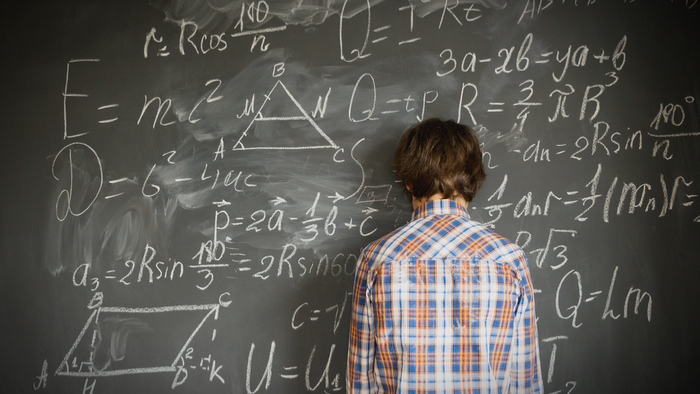 r = R cos 180°/n
Q = I Rt
3a-xb = ya+b
E = mc²
B
M N
A C
Q = tp
R = 3/4 π R³
D = b² - 4ac
- an = 2R sin 180°/n
p = 2a - 1/3 b + c
a₃ = 2R sin 180°/3 = 2R sin 60
R√3
B C
A H D K
1 2
c = √
Q = Lm
U = U₁